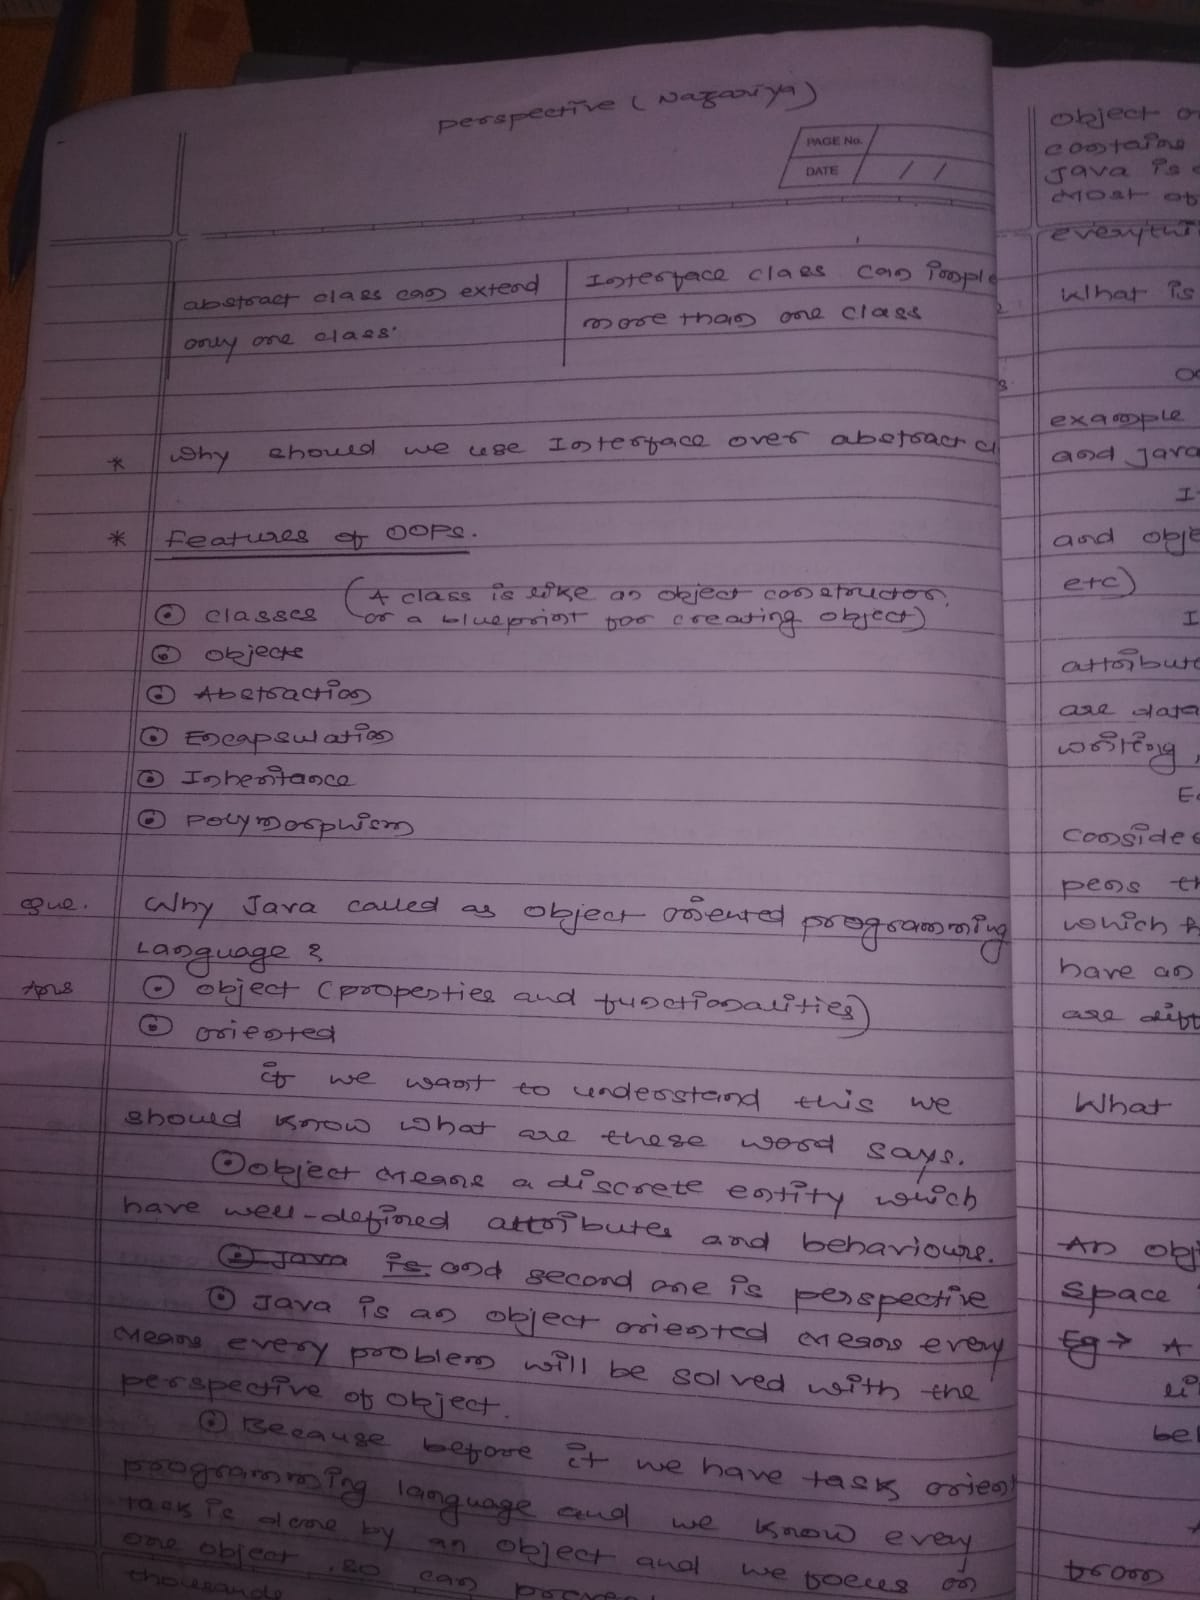 perspective (Nazariya)
PAGE No.
DATE / /
abstract class can extend
only one class.
Interface class can imple
more than one class
* Why should we use Interface over abstract cl
* Features of OOPs.
classes (A class is like an object constructor,
or a blueprint for creating object)
objects
Abstraction
Encapsulation
Inheritance
Polymorphism
Que. Why Java called as object oriented programming
Language ?
Ans object (properties and functionalities)
oriented
if we want to understand this we
should know what are these word says.
object means a discrete entity which
have well-defined attributes and behaviours.
Java is and second one is perspective
Java is an object oriented means every
means every problem will be solved with the
perspective of object.
Because before it we have task orient
programming language and we know every
task is done by an object and we focus on
one object, so can
thousands
object or
contains
Java is
most ob
everythi
What is
example
and java
and obje
etc)
I
attribute
are data
writing,
conside
pens th
which
have an
are diff
What
An obj
space
Eg → A
li
be